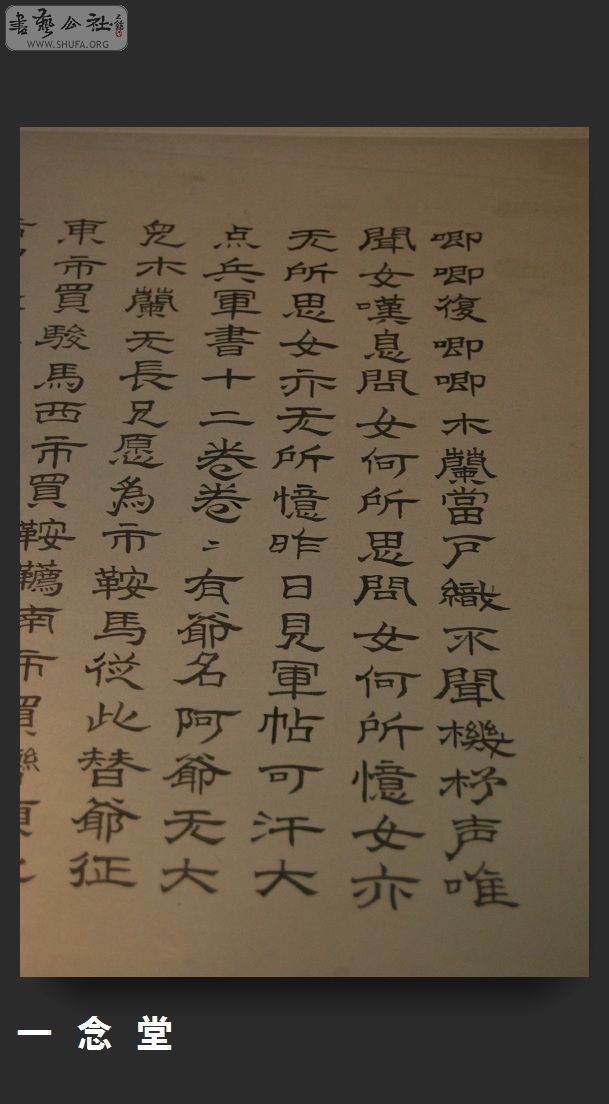 書藝公社
WWW.SHUFA.ORG
唧唧復唧唧木蘭當户織不聞機杼声唯
聞女嘆息問女何所思問女何所憶女亦
无所思女亦无所憶昨日見軍帖可汗大
点兵軍書十二卷卷〻有爺名阿爺无大
兒木蘭无長兄愿為市鞍馬從此替爺征
東市買駿馬西市買鞍韉南市買
一念堂